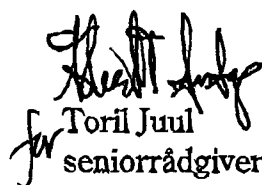 for Toril Juul
seniorrådgiver